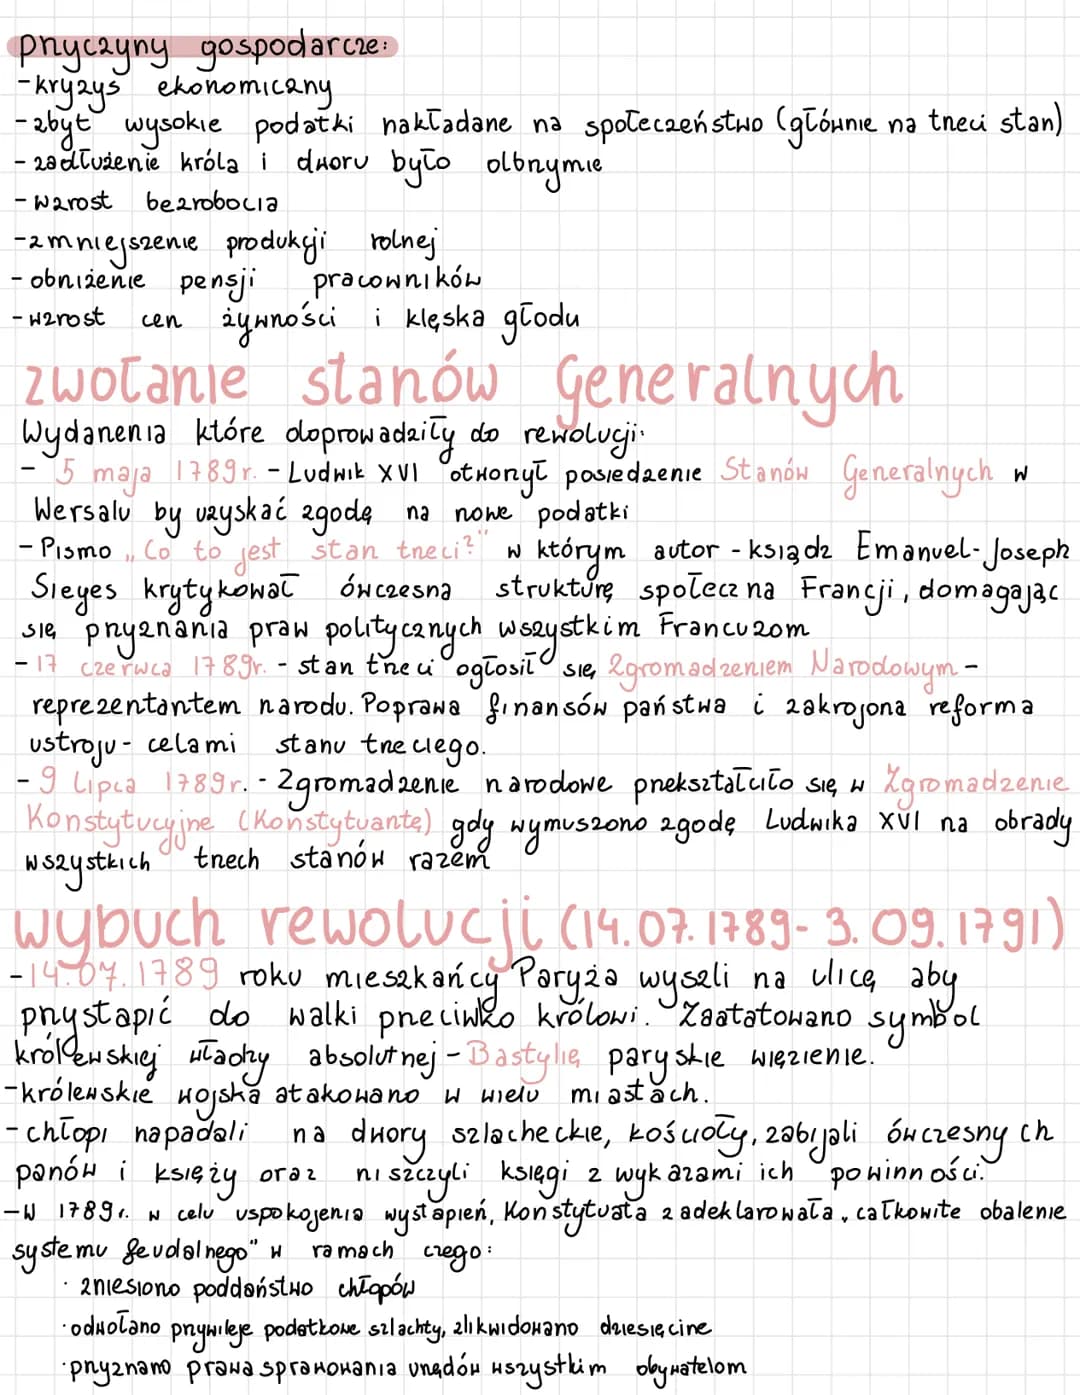 przyczyny gospodarcze:
- kryzys ekonomiczny
- zbyt wysokie podatki nakładane na społeczeństwo (głównie na trzeci stan)
- zadłużenie króla i dworu było olbrzymie
- wzrost bezrobocia
- zmniejszenie produkcji rolnej
- obniżenie pensji pracowników
- wzrost cen żywności i klęska głodu
zwołanie stanów Generalnych
Wydarzenia które doprowadziły do rewolucji:
- 5 maja 1789r. - Ludwik XVI otworzył posiedzenie Stanów Generalnych w
Wersalu by uzyskać zgodę na nowe podatki
- Pismo „Co to jest stan trzeci?" w którym autor - ksiądz Emanuel-Joseph
Sieyes krytykował ówczesna strukturę społeczna Francji, domagając
się przyznania praw politycznych wszystkim Francuzom
- 17 czerwca 1789r. - stan trzeci ogłosił się Zgromadzeniem Narodowym -
reprezentantem narodu. Poprawa finansów państwa i zakrojona reforma
ustroju - celami stanu trzeciego.
- 9 Lipca 1789r. - Zgromadzenie narodowe przekształciło się w Zgromadzenie
Konstytucyjne (Konstytuantę) gdy wymuszono zgodę Ludwika XVI na obrady
wszystkich trzech stanów razem
wybuch rewolucji (14.07.1789- 3.09.1791)
- 14.07.1789 roku mieszkańcy Paryża wyszli na ulicę aby
przystąpić do walki przeciwko królowi. Zaatatowano symbol
królewskiej władzy absolutnej - Bastylię paryskie więzienie.
- królewskie wojska atakowano w wielu miastach.
- chłopi napadali na dwory szlacheckie, kościoły, zabijali ówczesnych
panów i księży oraz niszczyli księgi z wykazami ich powinności.
- W 1789r. w celu uspokojenia wystąpień, Konstytuata zadeklarowała „całkowite obalenie
systemu feudalnego" w ramach czego:
· zniesiono poddaństwo chłopów
· odwołano przywileje podatkowe szlachty, zlikwidowano dziesięcine
· przyznano prawa sprawowania urzędów wszystkim obywatelom